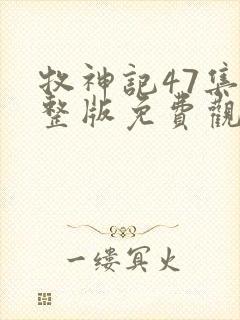 牧神記47集
整版免費觀
一缕冥火